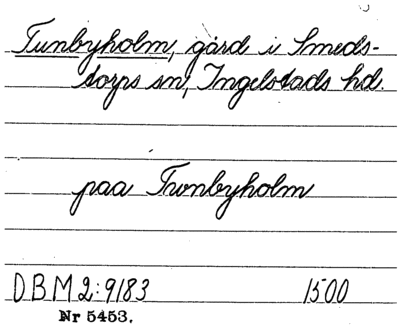 Tunbyholm, gård i Smeds-
torps sn, Ingelstads hd.
paa Twnbyholm
DBM 2:9183 1500
Nr 5453.